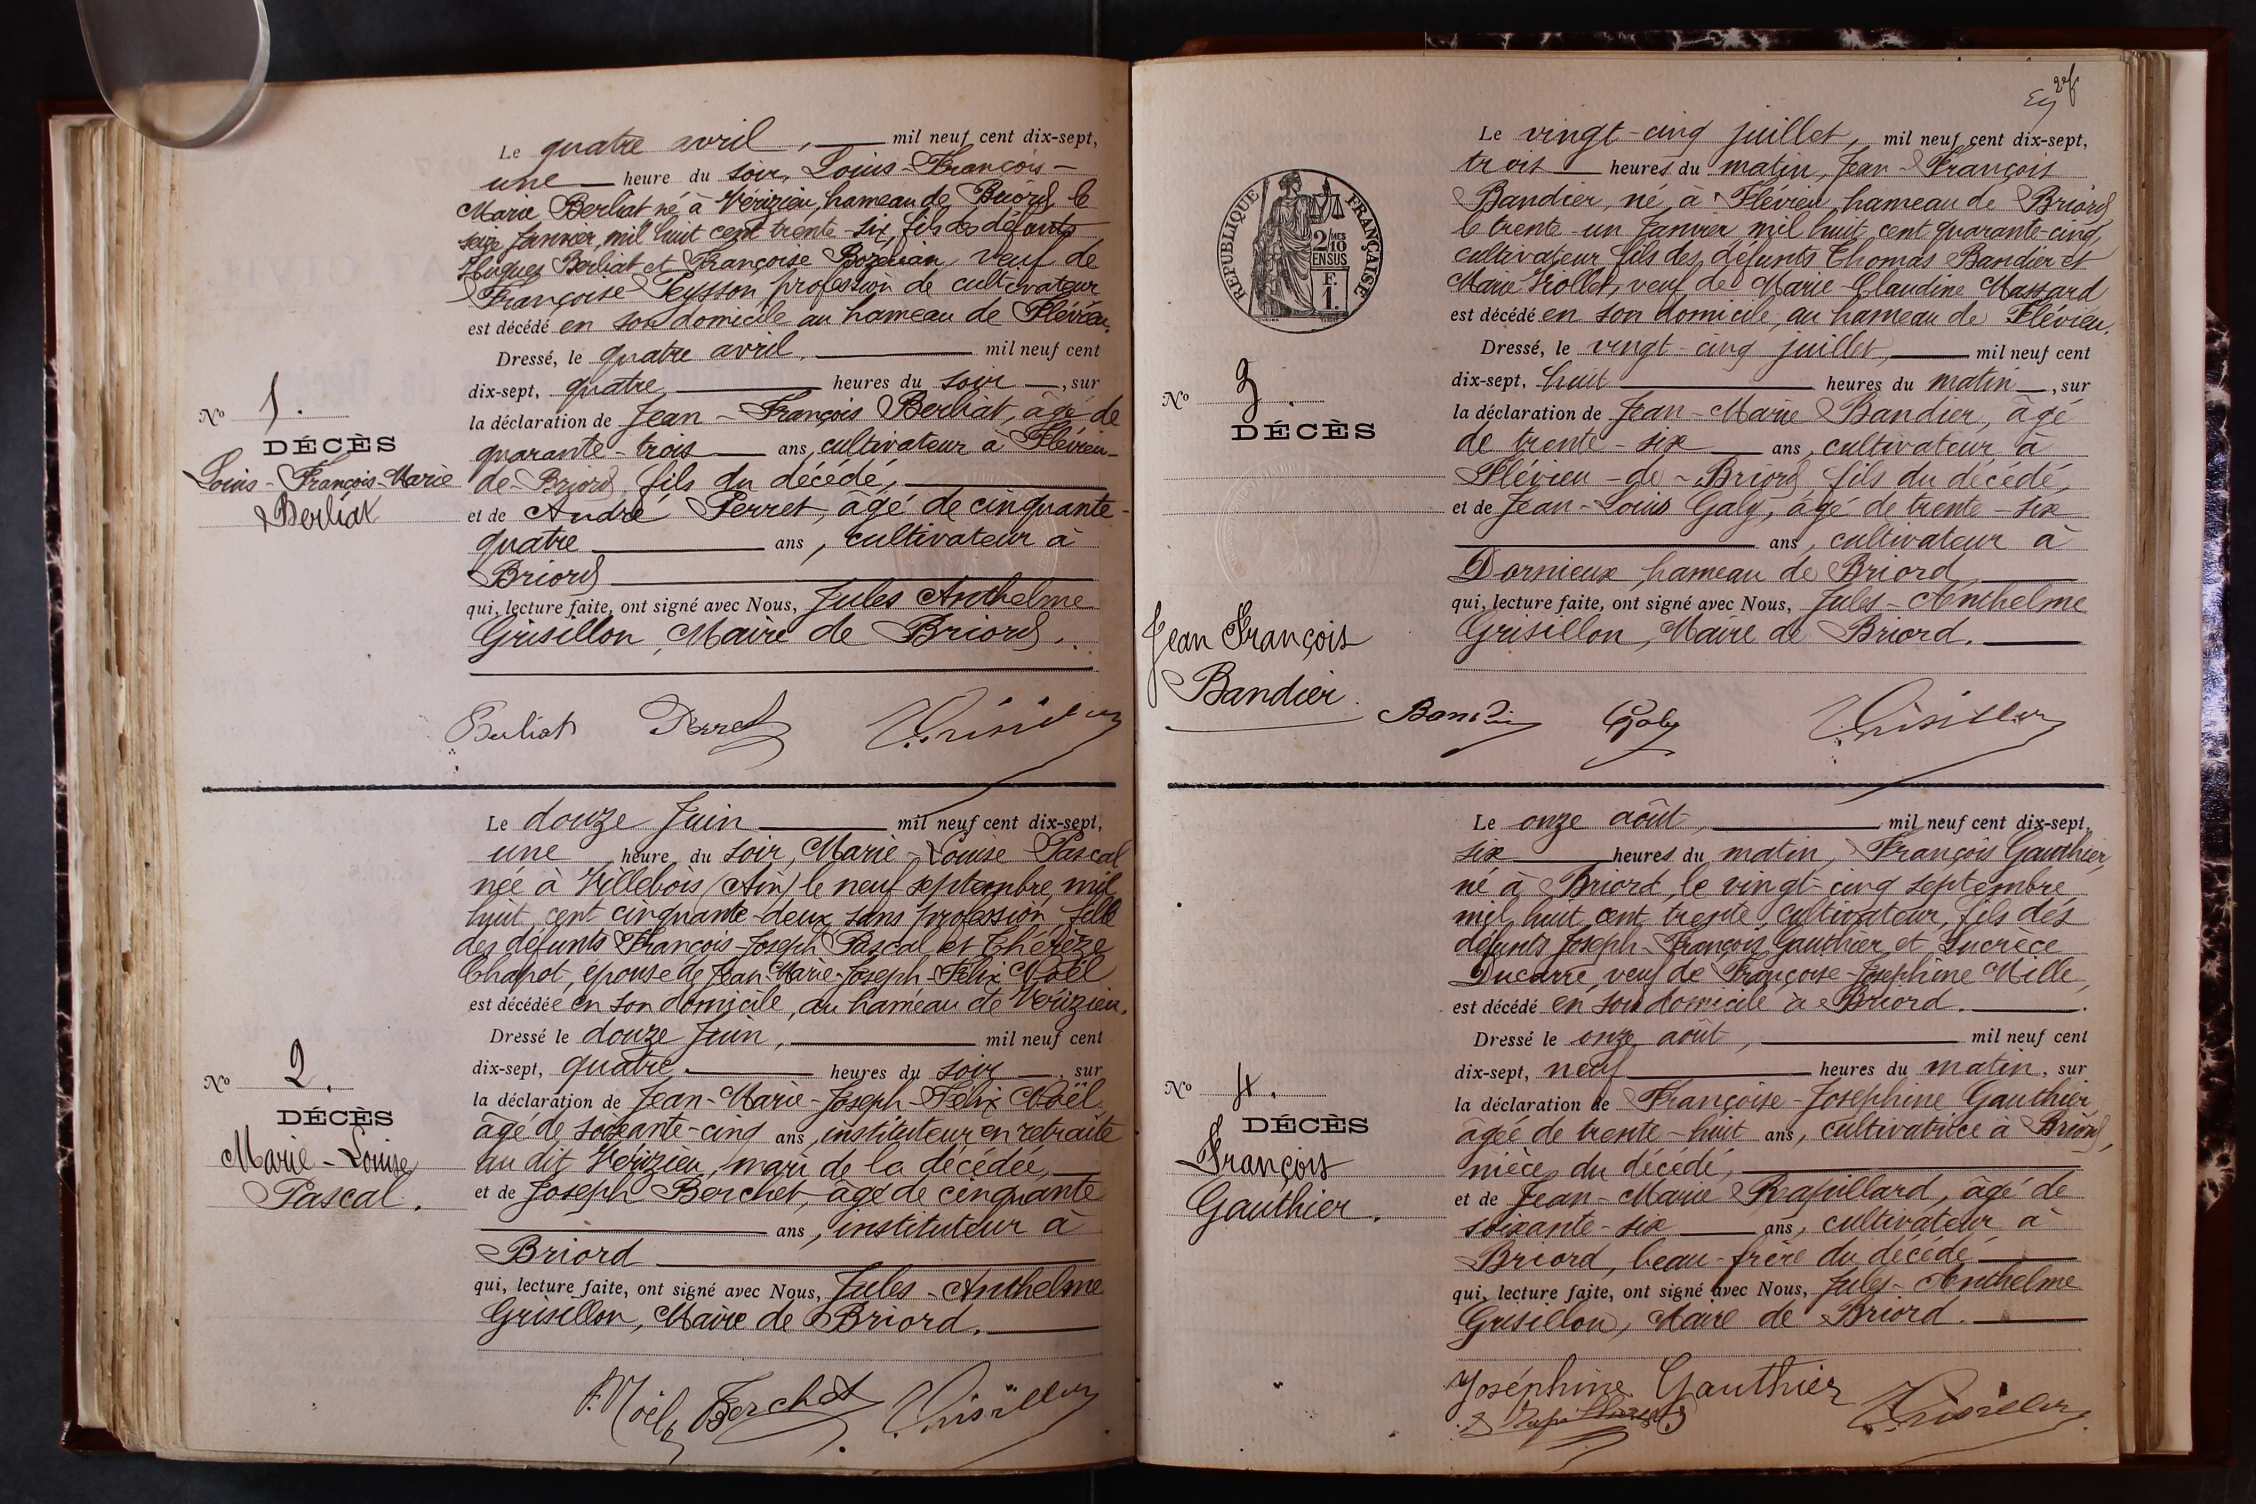 Le quatre avril, mil neuf cent dix-sept,
une heure du soir, Louis-François-
Marie Berliat né à Vérizieu, hameau de Briord le
seize Janvier, mil huit cent trente-six, fils des défunts
Hugues Berliat et Françoise Bozonan, veuf de
Françoise Peysson profession de cultivateur
est décédé en son domicile au hameau de Flévieu.
Dressé, le quatre avril, mil neuf cent
dix-sept, quatre heures du soir, sur
la déclaration de Jean-François Berliat, âgé de
quarante-trois ans, cultivateur à Flévieu-
de-Briord, fils du décédé,
et de André Perret, âgé de cinquante-
quatre ans, cultivateur à
Briord
qui, lecture faite, ont signé avec Nous, Jules Anthelme
Grisillon, Maire de Briord.
No 1.
DÉCÈS
Louis-François-Marie
Berliat
Berliat Perret Grisillon
Le douze Juin mil neuf cent dix-sept,
une heure du soir, Marie-Louise Pascal
née à Villebois (Ain) le neuf septembre, mil
huit cent cinquante-deux, sans profession, fille
des défunts François-Joseph Pascal et Thérèze
Chapot, épouse de Jean-Marie-Joseph-Félix Noël
est décédée en son domicile, au hameau de Vérizieu.
Dressé le douze Juin, mil neuf cent
dix-sept, quatre heures du soir, sur
la déclaration de Jean-Marie-Joseph-Félix Noël
âgé de soixante-cinq ans, instituteur en retraite
au dit Vérizieu, mari de la décédée,
et de Joseph Berchet, âgé de cinquante
ans, instituteur à
Briord
qui, lecture faite, ont signé avec Nous, Jules-Anthelme
Grisillon, Maire de Briord.
No 2.
DÉCÈS
Marie-Louise
Pascal.
F. Noël Berchet Grisillon
RÉPUBLIQUE FRANÇAISE
2/10 MES
EN SUS
F.
1.
Le vingt-cinq juillet, mil neuf cent dix-sept,
trois heures du matin, Jean-François
Bandier, né à Flévieu hameau de Briord,
le trente-un Janvier mil huit cent quarante-cinq,
cultivateur fils des défunts Thomas Bandier et
Marie Viollet, veuf de Marie-Claudine Massard
est décédé en son domicile, au hameau de Flévieu.
Dressé, le vingt-cinq juillet, mil neuf cent
dix-sept, huit heures du matin, sur
la déclaration de Jean-Marie Bandier, âgé
de trente-six ans, cultivateur à
Flévieu-de-Briord fils du décédé,
et de Jean-Louis Galy, âgé de trente-six
ans, cultivateur à
Dornieux, hameau de Briord
qui, lecture faite, ont signé avec Nous, Jules-Anthelme
Grisillon, Maire de Briord.
No 3.
DÉCÈS
Jean François
Bandier
Bandier Galy Grisillon
Le onze août, mil neuf cent dix-sept,
six heures du matin, François Gauthier,
né à Briord, le vingt-cinq septembre
mil huit cent trente, cultivateur, fils des
défunts Joseph-François Gauthier et Lucrèce
Ducarre, veuf de Françoise-Josephine Mille,
est décédé en son domicile à Briord.
Dressé le onze août, mil neuf cent
dix-sept, neuf heures du matin, sur
la déclaration de Françoise-Josephine Gauthier
âgée de trente-huit ans, cultivatrice à Briord,
nièce du décédé,
et de Jean-Marie Rapillard, âgé de
soixante-six ans, cultivateur à
Briord, beau-frère du décédé
qui, lecture faite, ont signé avec Nous, Jules-Anthelme
Grisillon, Maire de Briord.
No 4.
DÉCÈS
François
Gauthier.
Joséphine Gauthier
Rapillard Grisillon